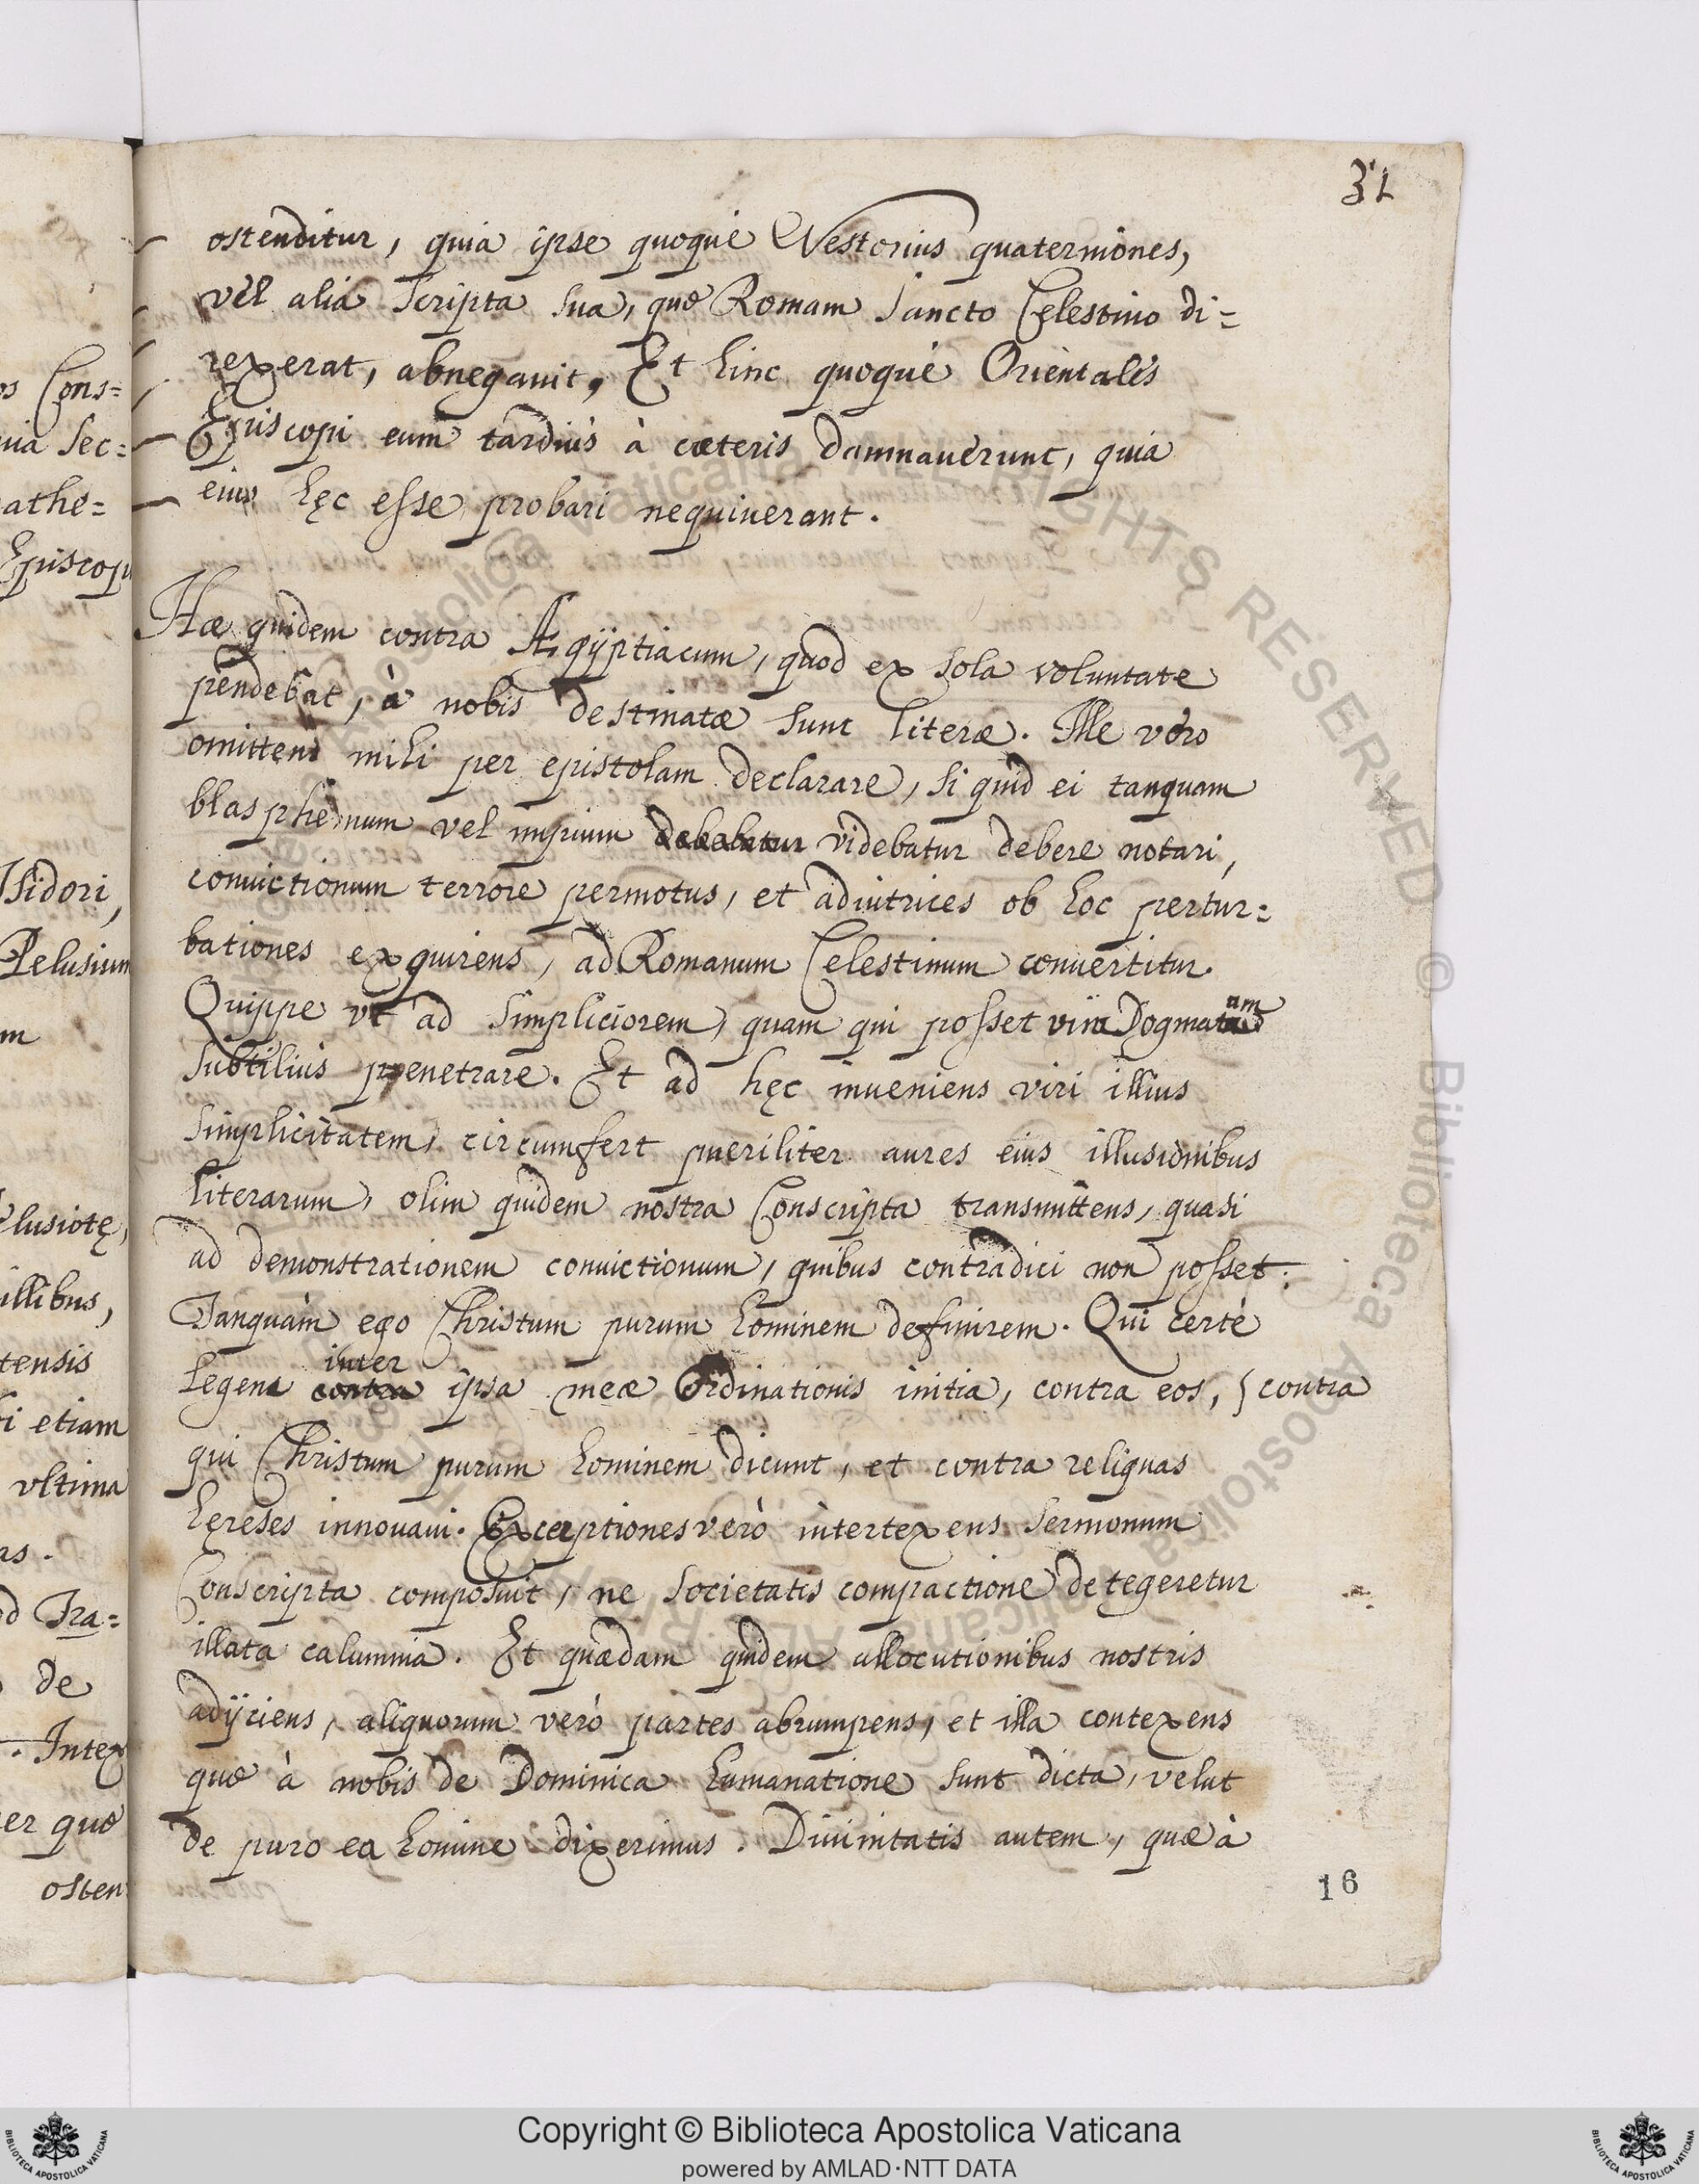 31
ostenditur, quia ipse quoque Nestorius quaterniones,
vel alia scripta sua, quæ Romam Sancto Cęlestino di=
rexerat, abnegauit. Et hinc quoque Orientales
Episcopi eum tardius à cæteris damnauerunt, quia
eius hęc esse probari nequiuerant.
Hæ quidem contra Ægÿptiacum, quod ex sola voluntate
pendebat, à nobis destinatæ sunt literæ. Ille vero
omittens mihi per epistolam declarare, si quid ei tanquam
blasphemum vel impium videbatur debere notari,
conuictionum terrore permotus, et adiutrices ob hoc pertur=
bationes exquirens, ad Romanum Cęlestinum conuertitur.
Quippe vt ad simpliciorem, quam qui posset vim Dogmatum
subtilius penetrare. Et ad hęc inueniens viri illius
simplicitatem, circumfert pueriliter aures eius illusionibus
literarum, olim quidem nostra Conscripta transmittens, quasi
ad demonstrationem conuictionum, quibus contradici non posset:
Tanquàm ego Christum purum hominem definirem. Qui certè
inter
legens contra ipsa meæ Ordinationis initia, contra eos, contra
qui Christum purum hominem dicunt, et contra reliquas
hęreses innouaui. Excerptiones verò intertexens sermonum
Conscripta composuit, ne societatis compactione detegeretur
illata calumnia. Et quædam quidem allocutionibus nostris
adijciens, aliquorum verò partes abrumpens, et illa contexens
quæ à nobis de Dominica humanatione sunt dicta, velut
de puro ea homine dixerimus. Diuinitatis autem, quæ à
16
os Cons=
uia Sec=
athe=
Episcopu
Isidori,
Pelusium
m
elusiotę,
illibus,
tensis
i etiam
vltima
as.
d Tra=
de
. Intex
er quæ
osten
© Biblioteca Apostolica Vaticana ALL RIGHTS RESERVED
Copyright © Biblioteca Apostolica Vaticana
powered by AMLAD·NTT DATA
BIBLIOTECA APOSTOLICA VATICANA
BIBLIOTECA APOSTOLICA VATICANA